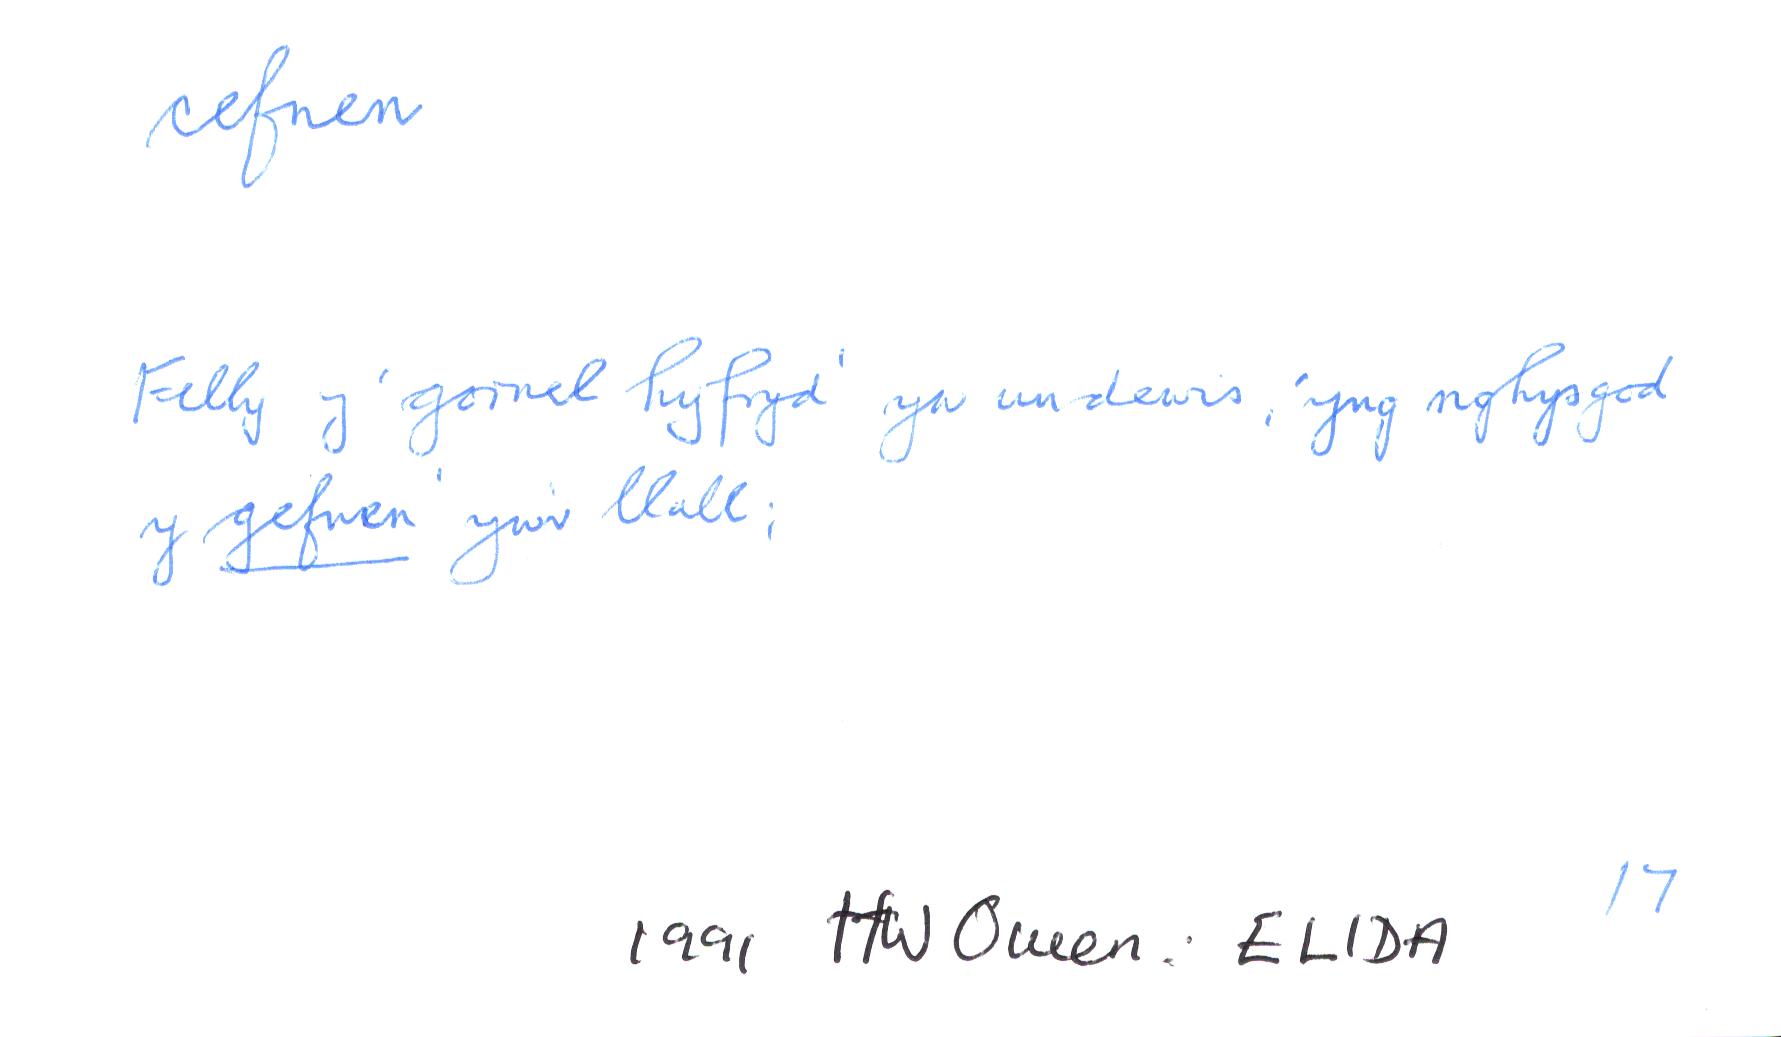 cefnen
Felly y 'gornel hyfryd' yn un dewis, 'yng nghysgod
y gefnen' yw'r llall;
17
1991 HW Owen: ELIDA